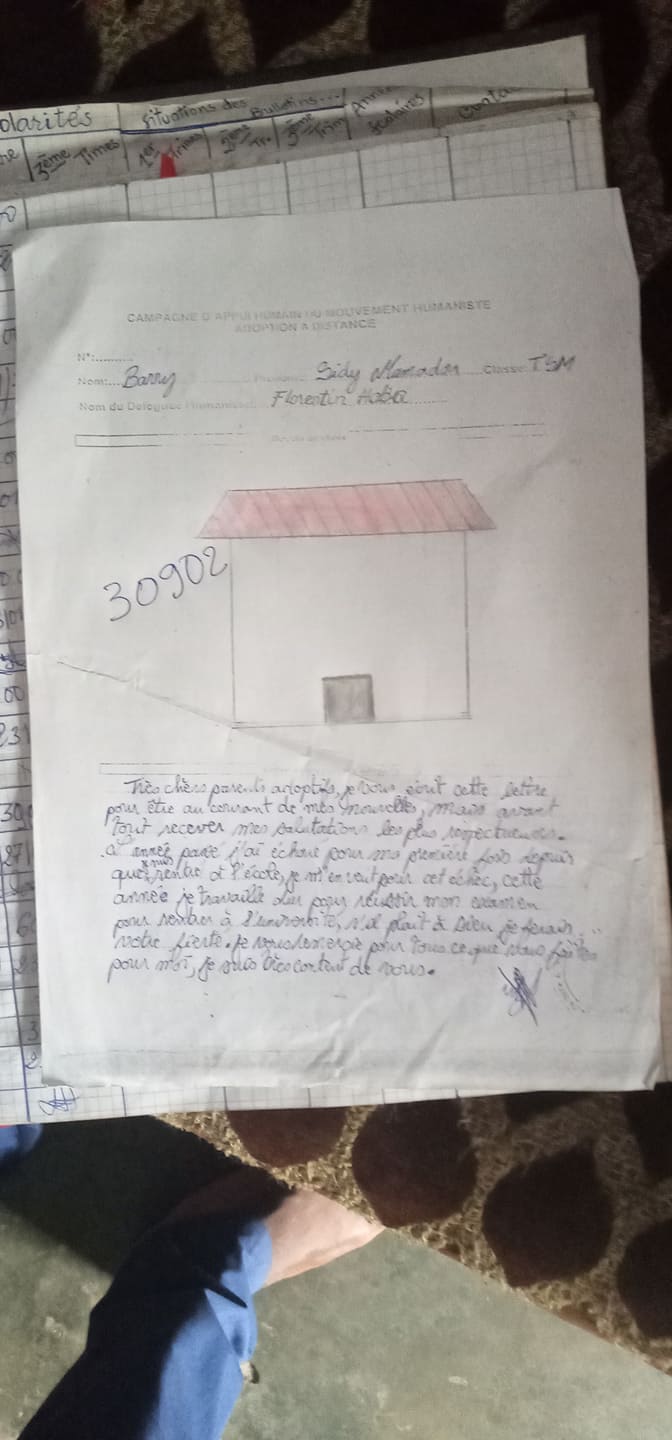 olarités
Situations des Bulletins...
Année Scolaires
3ème Times
1er Trimes
2ème Tr.
3ème Trim
CAMPAGNE D'APPUI HUMAIN DU MOUVEMENT HUMANISTE
ADOPTION A DISTANCE
N°:.........
Nom:... Barry Prénoms: Sidy Mamadou Classe: TSM
Nom du Délégué Humaniste: Florentin Haba
30902
Très chèrs parents adoptifs, je vous écrit cette lettre
pour être au courant de mes nouvelles, mais avant
tout recever mes salutations les plus respectueuses.
L'année passé j'ai échoué pour ma première fois depuis
que j'suis rentré à l'école, je m'en veut pour cet échec, cette
année je travaille dur pour réussir mon examen
pour rentrer à l'université, s'il plait à Dieu je ferais
votre fierté. Je vous remercie pour tous ce que vous faites
pour moi, je suis très content de vous.